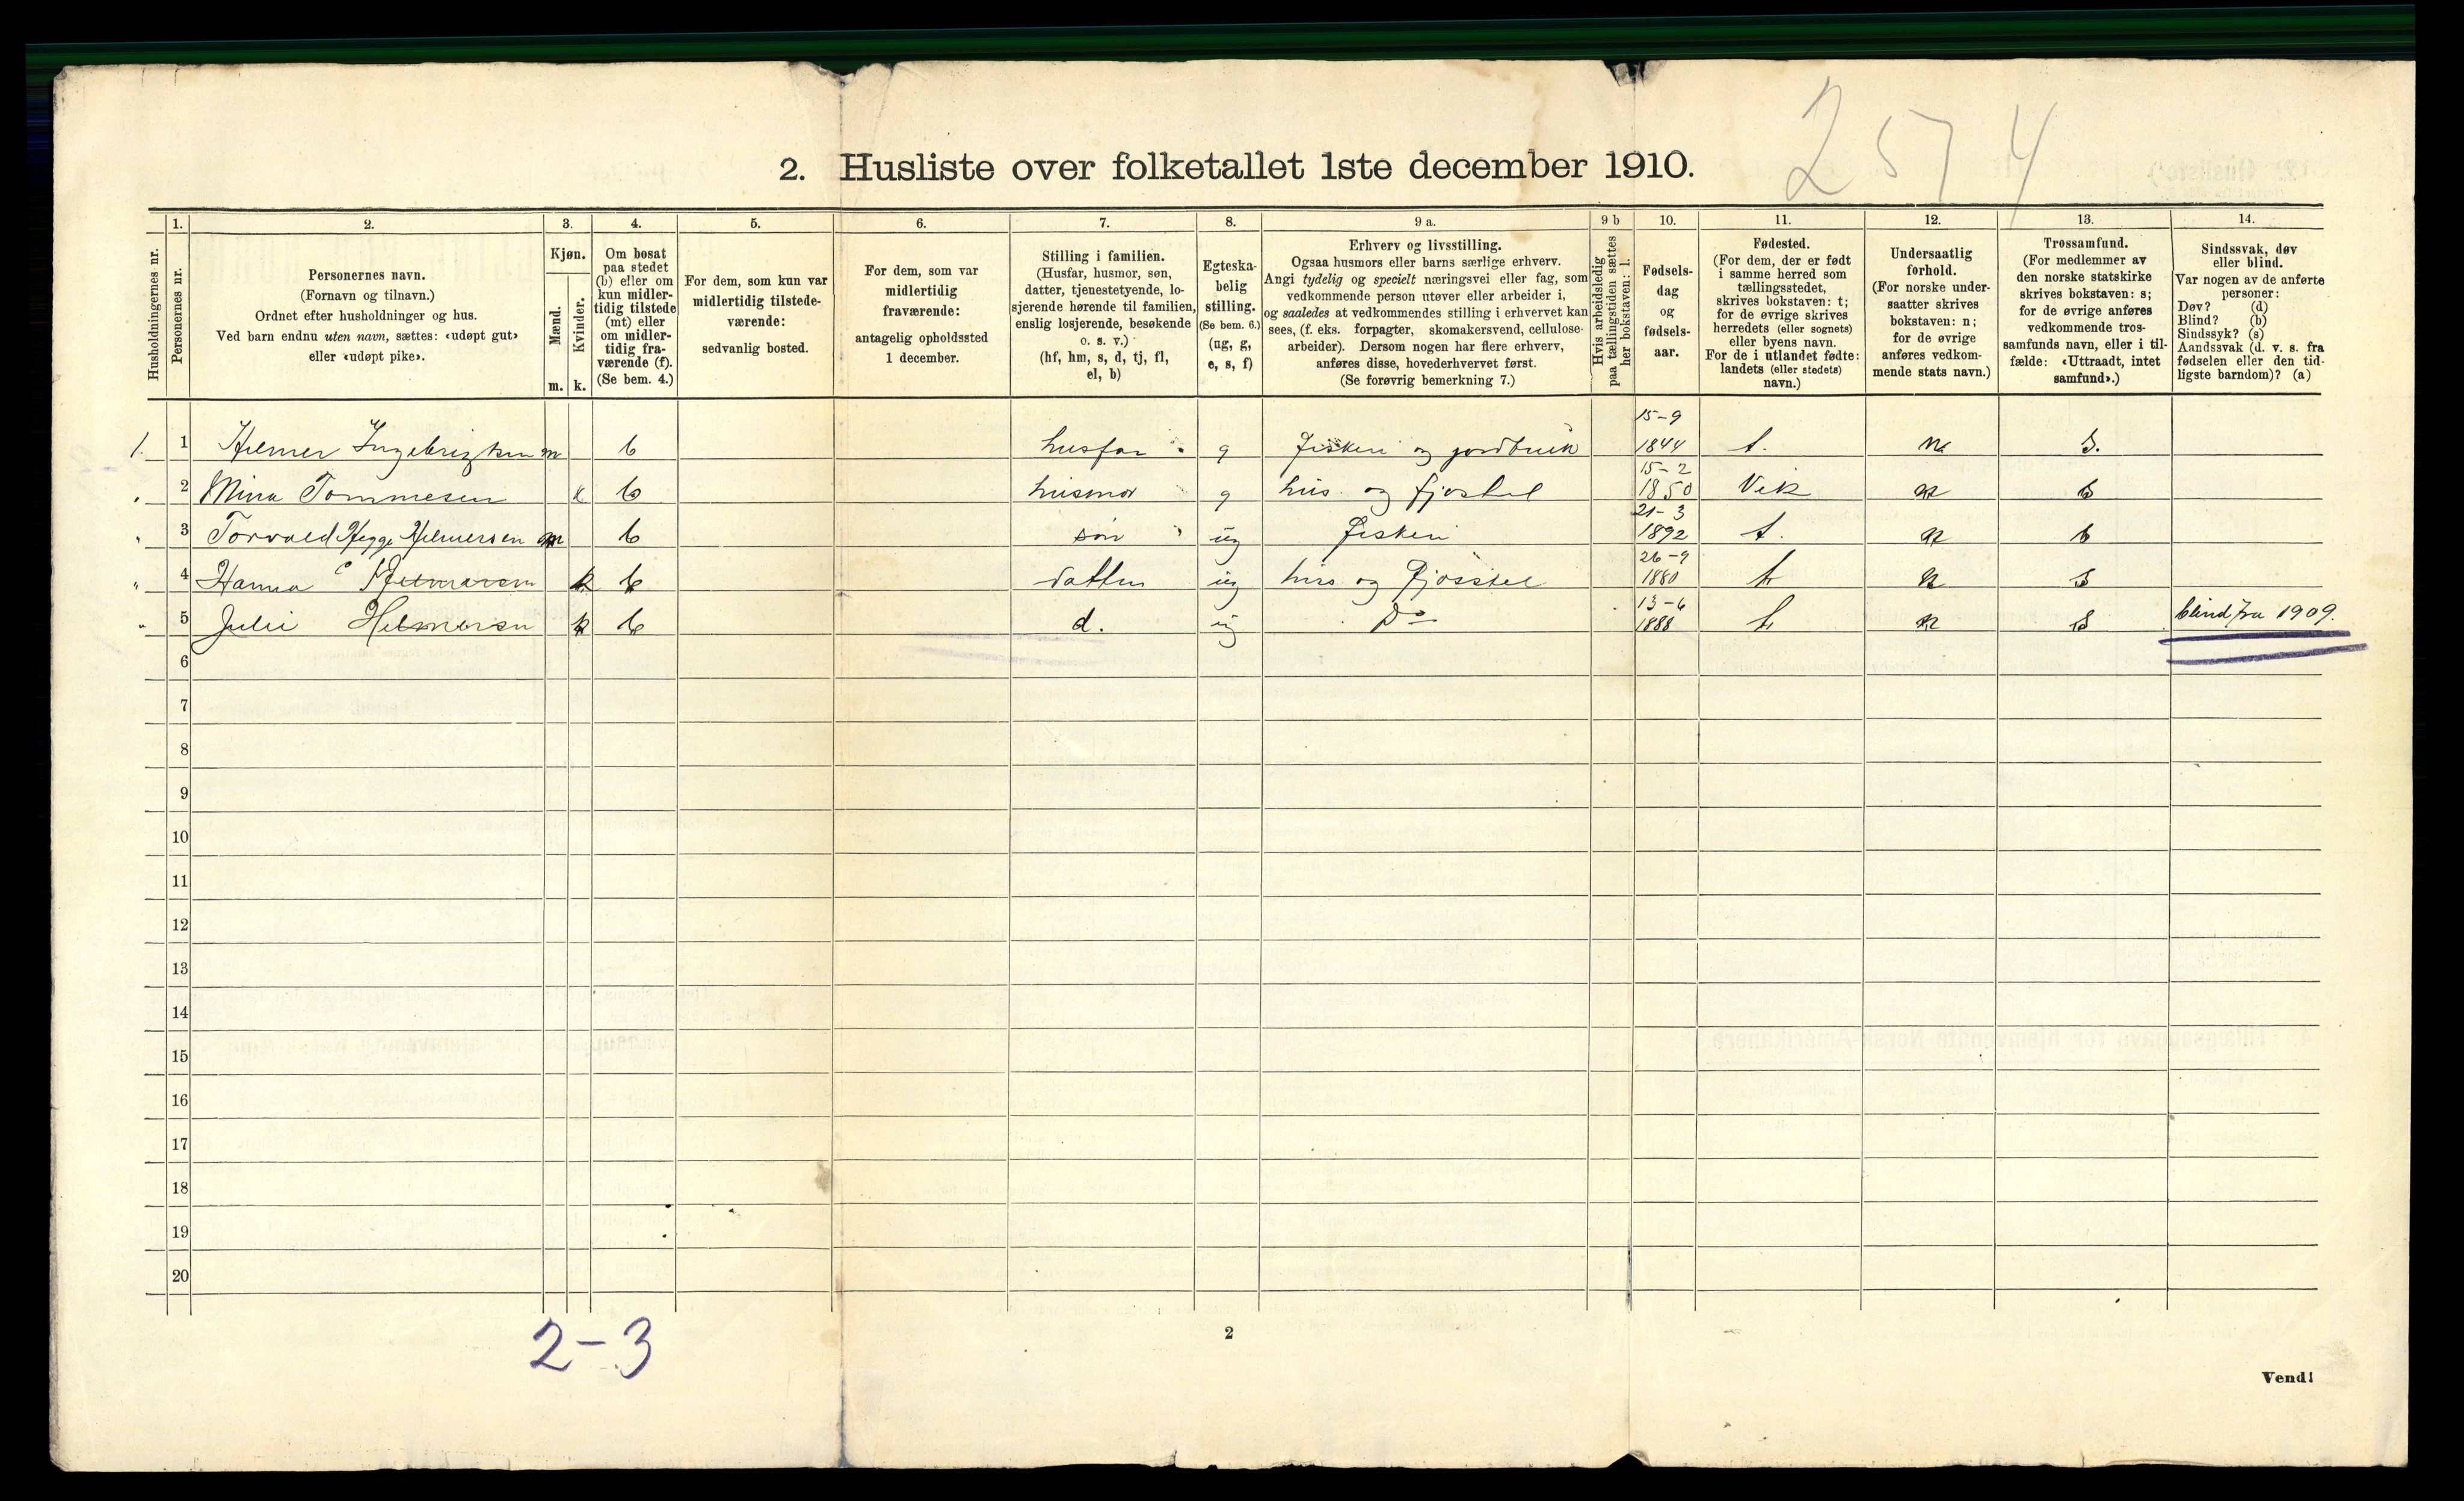 2574
2. Husliste over folketallet 1ste december 1910.
Husholdningernes nr.
1. Personernes nr.
2. Personernes navn.
(Fornavn og tilnavn.)
Ordnet efter husholdninger og hus.
Ved barn endnu uten navn, sættes: «udøpt gut»
eller «udøpt pike».
3. Kjøn.
Mænd. m.
Kvinder. k.
4. Om bosat
paa stedet
(b) eller om
kun midler-
tidig tilstede
(mt) eller
om midler-
tidig fra-
værende (f).
(Se bem. 4.)
5. For dem, som kun var
midlertidig tilstede-
værende:
sedvanlig bosted.
6. For dem, som var
midlertidig
fraværende:
antagelig opholdssted
1 december.
7. Stilling i familien.
(Husfar, husmor, søn,
datter, tjenestetyende, lo-
sjerende hørende til familien,
enslig losjerende, besøkende
o. s. v.)
(hf, hm, s, d, tj, fl,
el, b)
8. Egteska-
belig
stilling.
(Se bem. 6.)
(ug, g,
e, s, f)
9 a. Erhverv og livsstilling.
Ogsaa husmors eller barns særlige erhverv.
Angi tydelig og specielt næringsvei eller fag, som
vedkommende person utøver eller arbeider i,
og saaledes at vedkommendes stilling i erhvervet kan
sees, (f. eks. forpagter, skomakersvend, cellulose-
arbeider). Dersom nogen har flere erhverv,
anføres disse, hovederhvervet først.
(Se forøvrig bemerkning 7.)
9 b Hvis arbeidsledig
paa tællingstiden sættes
her bokstaven: l.
10. Fødsels-
dag
og
fødsels-
aar.
11. Fødested.
(For dem, der er født
i samme herred som
tællingsstedet,
skrives bokstaven: t;
for de øvrige skrives
herredets (eller sognets)
eller byens navn.
For de i utlandet fødte:
landets (eller stedets)
navn.)
12. Undersaatlig
forhold.
(For norske under-
saatter skrives
bokstaven: n;
for de øvrige
anføres vedkom-
mende stats navn.)
13. Trossamfund.
(For medlemmer av
den norske statskirke
skrives bokstaven: s;
for de øvrige anføres
vedkommende tros-
samfunds navn, eller i til-
fælde: «Uttraadt, intet
samfund».)
14. Sindssvak, døv
eller blind.
Var nogen av de anførte
personer:
Døv? (d)
Blind? (b)
Sindssyk? (s)
Aandssvak (d. v. s. fra
fødselen eller den tid-
ligste barndom)? (a)
1. 1 Helmer Ingebrigtsen m b husfar g Fiskeri og jordbruk 15-9 1844 t. n s.
" 2 Mina Tommesen k b husmor g hus og fjøsstel 15-2 1850 Vik n s
" 3 Torvald Hegge Helmersen m b søn ug Fiskeri 21-3 1892 t. n s
" 4 Hanna Helmersen k b datter ug hus og Fjøsstel 26-9 1880 t. n s
" 5 Julie Helmersen k b d. ug Do 13-6 1888 t. n s blind fra 1909.
6
7
8
9
10
11
12
13
14
15
16
17
18
19
20
2-3
2
Vend!